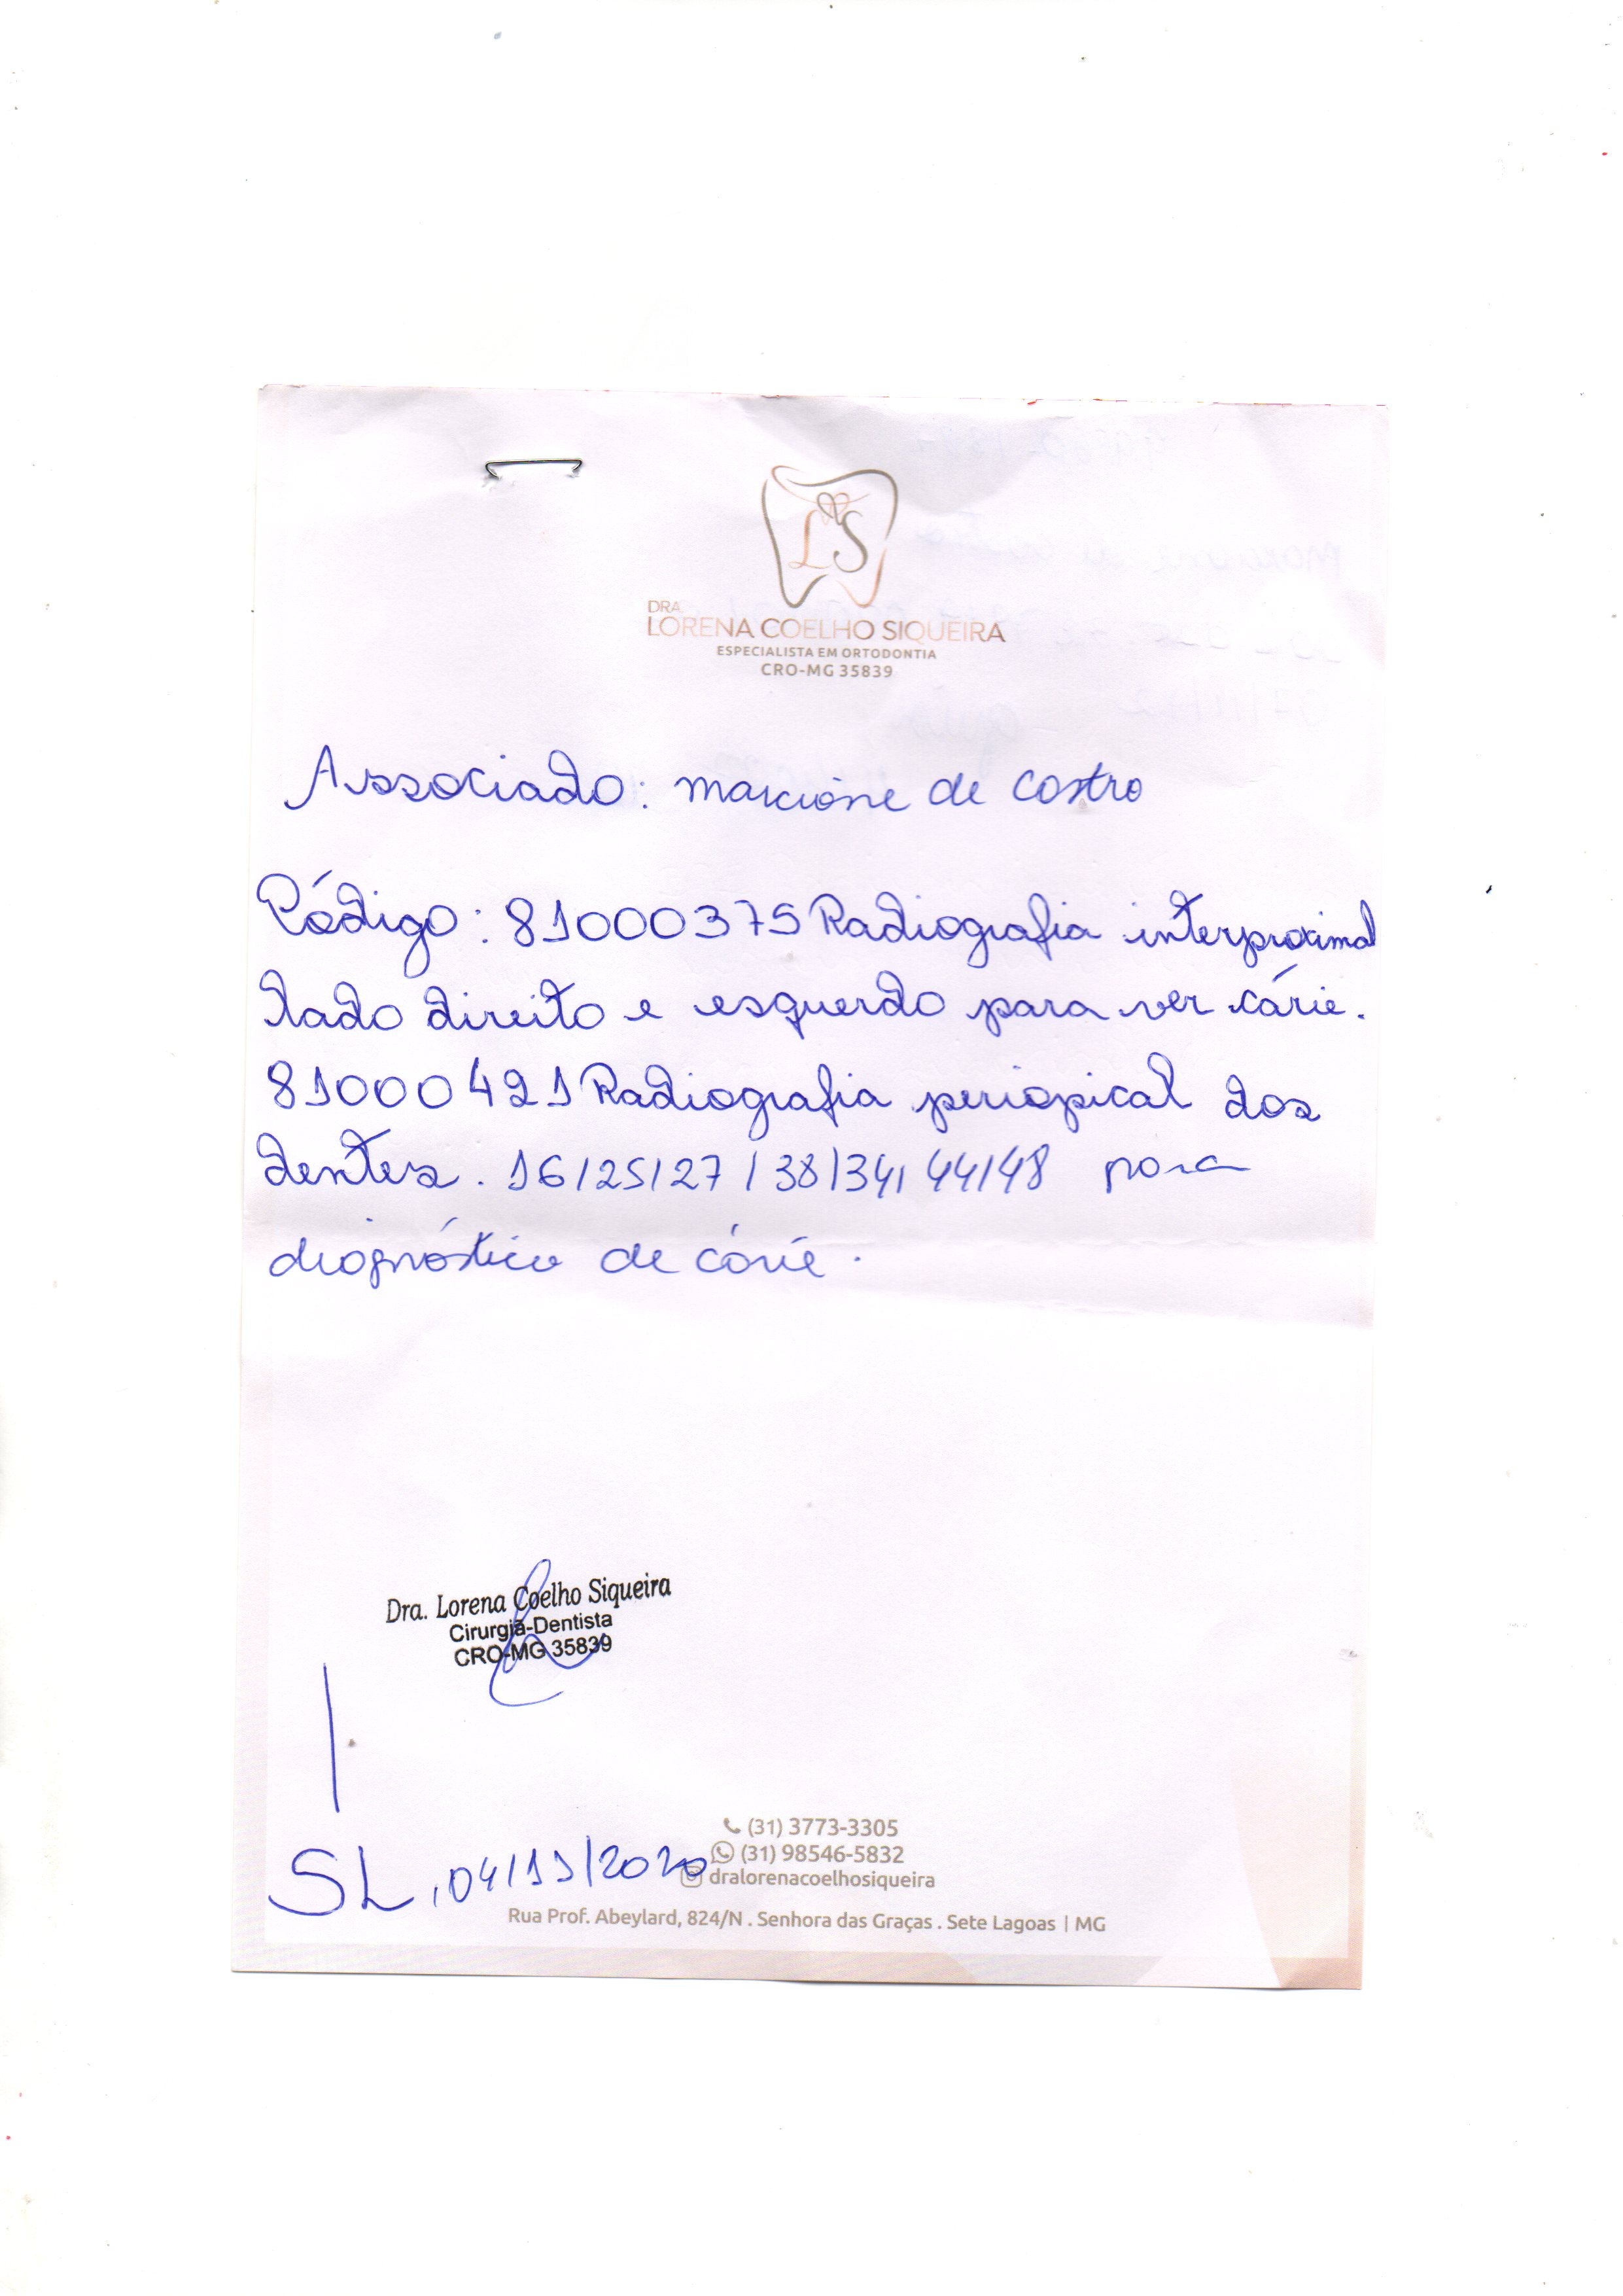 LS
DRA.
LORENA COELHO SIQUEIRA
ESPECIALISTA EM ORTODONTIA
CRO-MG 35839
Associado: Marcione de Castro
Código: 81000375 Radiografia interproximal
lado direito e esquerdo para ver cárie.
81000421 Radiografia periapical dos
dentes. 16/25/27/38/34/44/48 para
diagnóstico de cárie.
Dra. Lorena Coelho Siqueira
Cirurgiã-Dentista
CRO-MG 35839
(31) 3773-3305
(31) 98546-5832
SL, 04/11/2020
dralorenacoelhosiqueira
Rua Prof. Abeylard, 824/N . Senhora das Graças . Sete Lagoas | MG